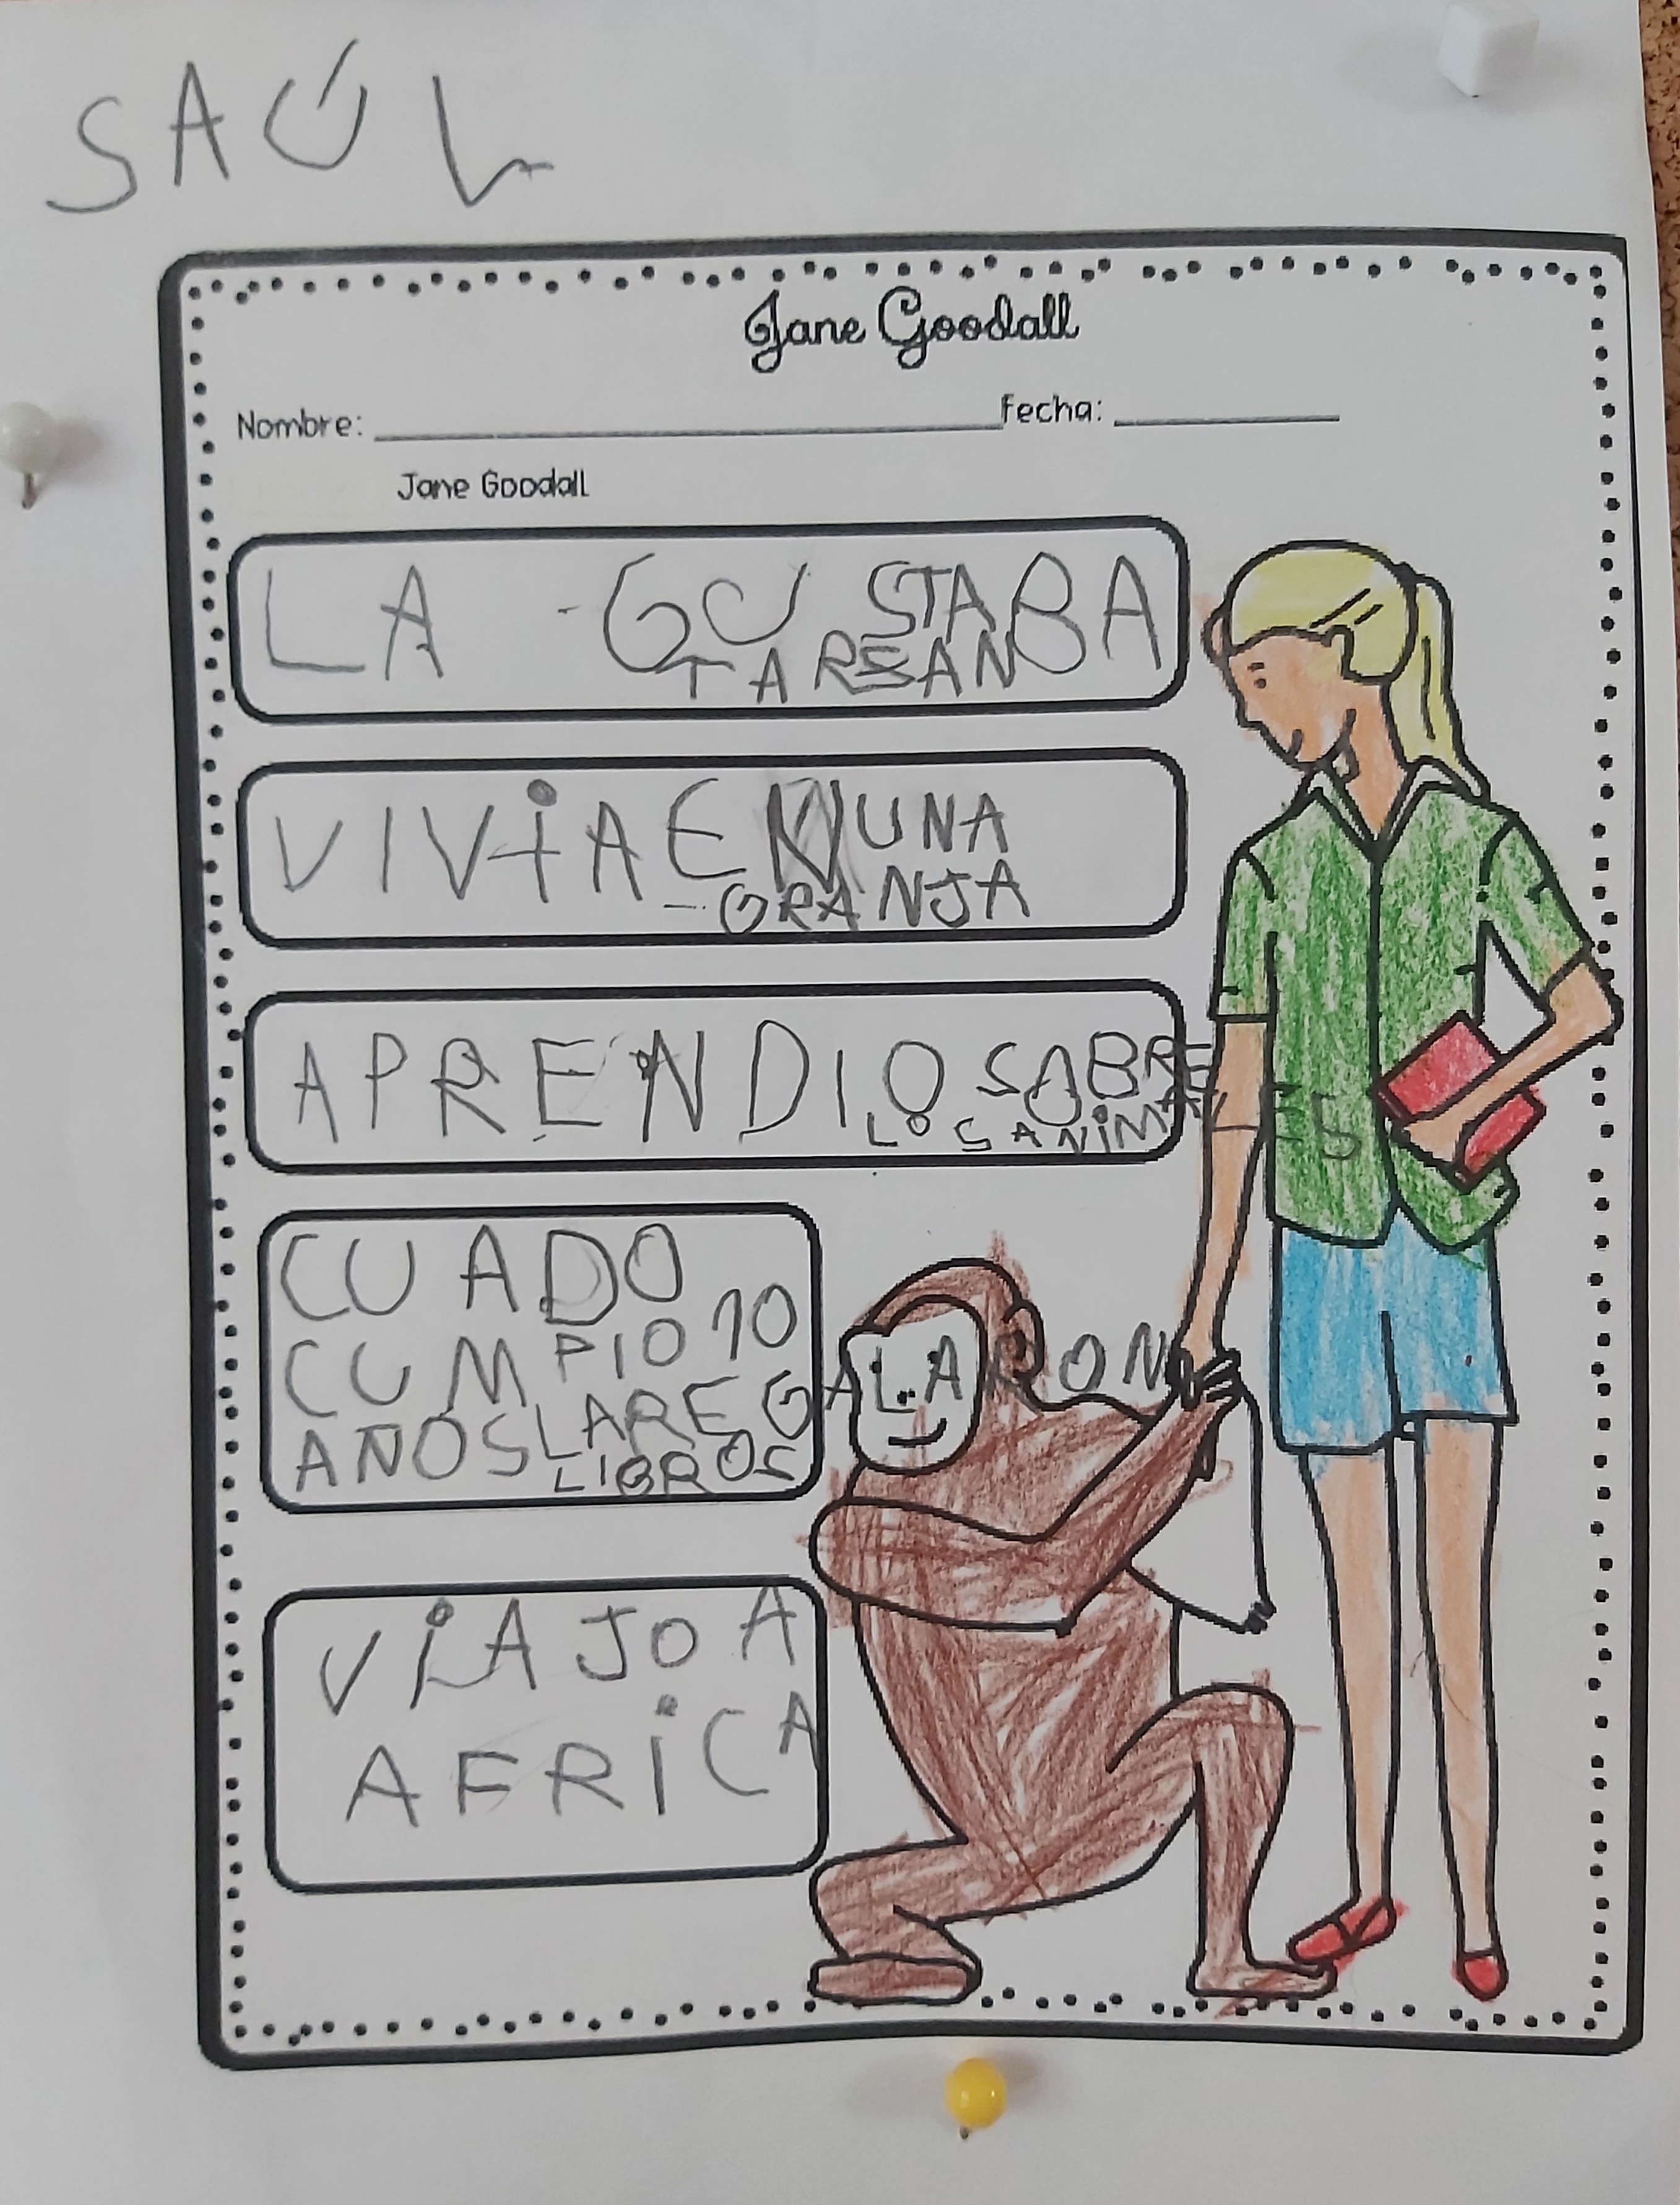 SAÚL
Jane Goodall
Nombre: Fecha:
Jane Goodall
LA GUSTABA
TARSAN
VIVIA EN UNA
GRANJA
APRENDIO SOBRE
LOS ANIMALES
CUADO
CUMPIO 10
AÑOS LA REGALARON
LIBROS
VIAJO A
AFRICA